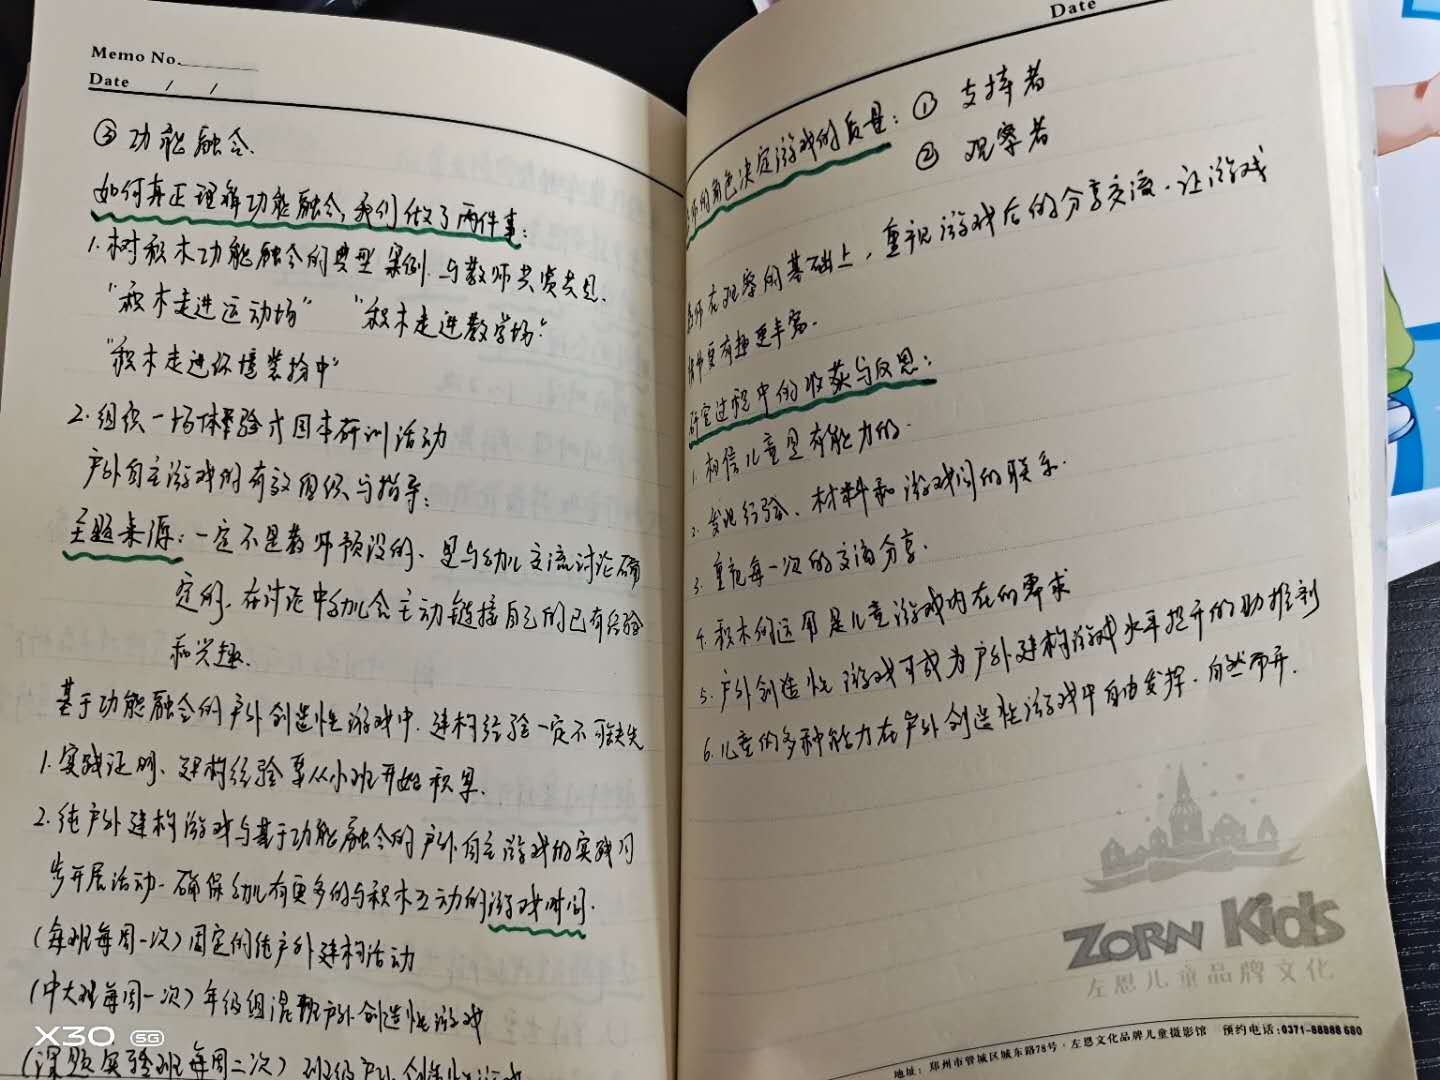 Memo No.
Date / /
③ 功能融合.
如何真正理解功能融合,我们做了两件事:
1.树积木功能融合的典型案例.与教师共赏共思.
“积木走进运动场” “积木走进教学场”
“积木走进环境装扮中”
2.组织一场体验式园本研训活动
户外自主游戏的有效组织与指导:
主题来源:一定不是教师预设的、是与幼儿交流讨论确
定的,在讨论中幼儿会主动链接自己的已有经验
和兴趣.
基于功能融合的户外创造性游戏中.建构经验一定不可缺失
1.实践证明、建构经验要从小班开始积累.
2.纯户外建构游戏与基于功能融合的户外自主游戏的实践同
步开展活动-确保幼儿有更多的与积木互动的游戏时间.
(每班每周一次)固定的纯户外建构活动
(中大班每周一次)年级组混班户外创造性游戏
(课题实验班每周二次)班级户外创造性游戏
X30 5G
Date
师的角色决定游戏的质量: ① 支持者
② 观察者
教师在观察的基础上,重视游戏后的分享交流.让游戏
情节更有趣更丰富.
研究过程中的收获与反思:
1.相信儿童是有能力的.
2.发现经验、材料和游戏间的联系.
3.重视每一次的交流分享.
4.积木的运用是儿童游戏内在的需求
5.户外创造性游戏可成为户外建构游戏水平提升的助推剂
6.儿童的多种能力在户外创造性游戏中自由发挥.自然而开.
ZORN Kids
左恩儿童品牌文化
地址:郑州市管城区城东路78号·左恩文化品牌儿童摄影馆 预约电话:0371-88888 680